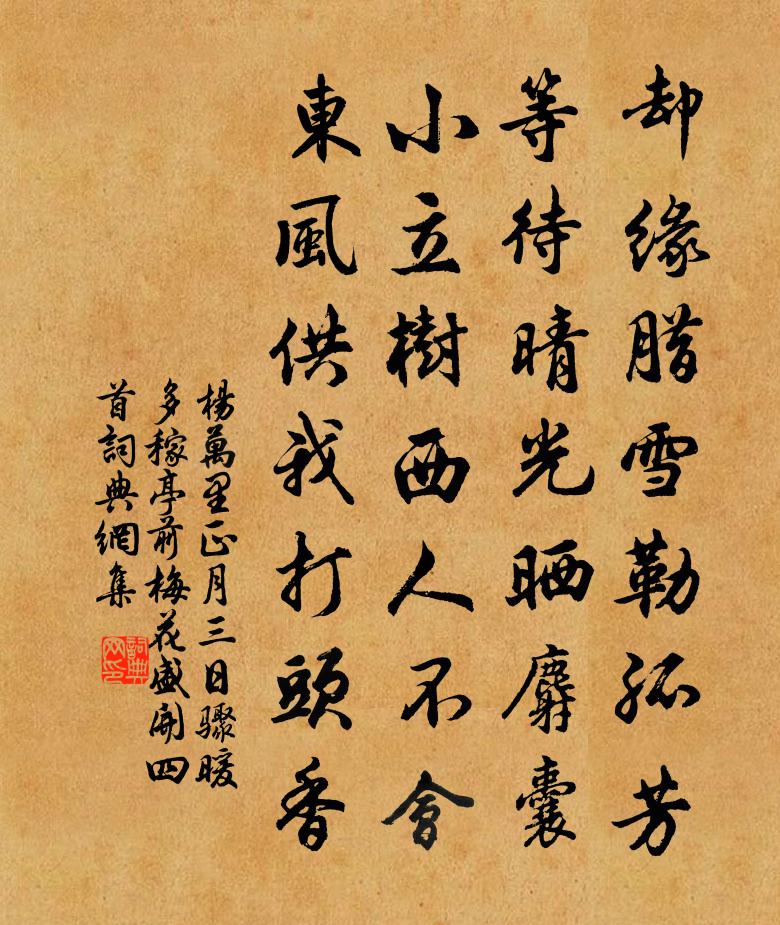 却緣腊雪勒孤芳
等待晴光晒麝囊
小立樹西人不會
東風供我打頭香
楊萬里正月三日驟暖
多稼亭前梅花盛開四
首詞典網集
詞典
网印